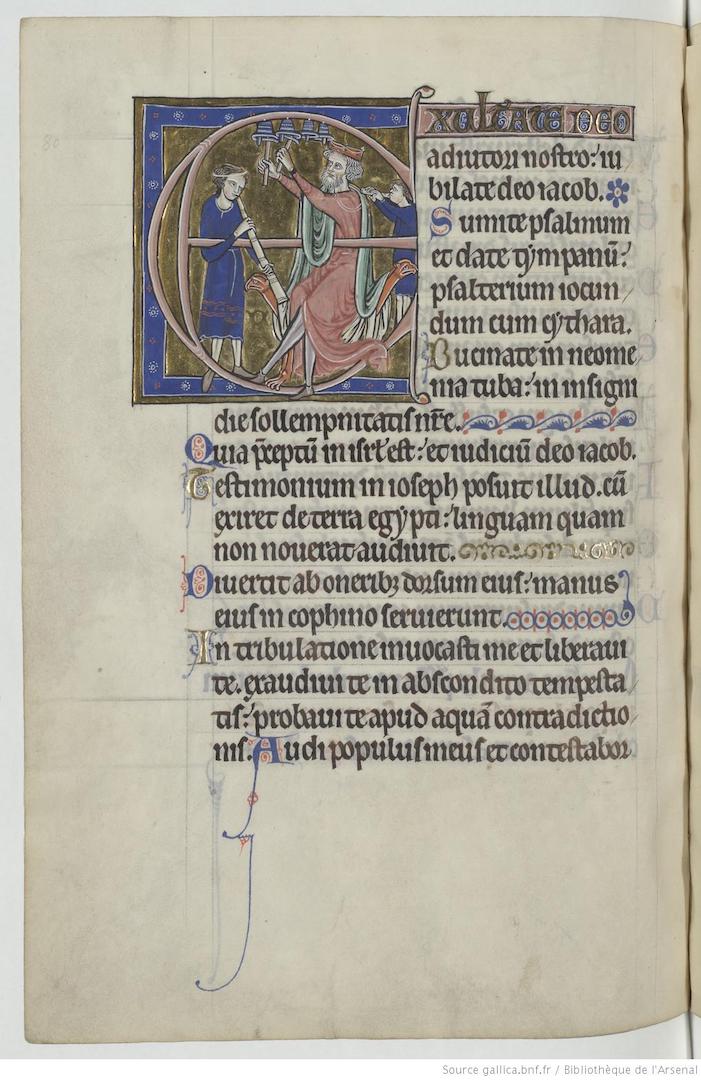 EXULTATE DEO
adiutori nostro: iu
bilate deo iacob.
Sumite psalmum
et date tympanū:
psalterium iocun
dum cum cythara.
Bucinate in neome
nia tuba: in insigni
die sollempnitatis nr̄e.
Quia p̄ceptū in isrl̄ est: et iudiciū deo iacob.
Testimonium in ioseph posuit illud. cū
exiret de terra egypti: linguam quam
non nouerat audiuit.
Diuertit ab oneribꝫ dorsum eius: manus
eius in cophino seruierunt.
In tribulatione inuocasti me et liberaui
te. exaudiui te in abscondito tempesta
tis: probaui te apud aquā contradictio
nis. Audi populus meus et contestabor
Source gallica.bnf.fr / Bibliothèque de l'Arsenal